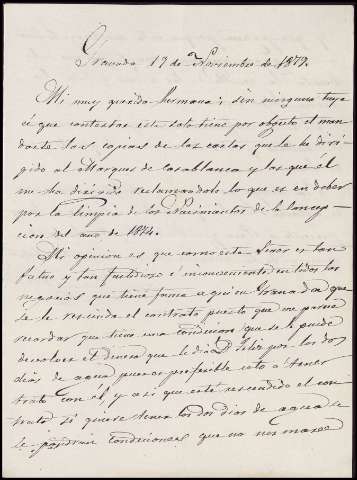 Granada 17 de Noviembre de 1879.
Mi muy querida hermana; sin ninguna tuya
á que contestar esta solo tiene por objeto el man
darte las copias de las cartas que le he diri
gido al Marques de Casablanca y las que el
me ha dirigido reclamandole lo que es en deber
por la limpia de los Nacimientos de la Concep
cion del año de 1874.
Mi opinion es que como este Señor es tan
fatuo y tan fastidioso é inconsecuente en todos los
negocios que tiene fama aqui en Granada que
se le rescinda el contrato puesto que me parece
recordar que tiene una condicion que se le puede
devolver el dinero que le dió D. Felix por los dos
dias de agua pues es preferible esto á tener
trato con él y asi que esté rescendido el con
trato si quiere tener los dos dias de agua se
le pondran condiciones que no nos mares